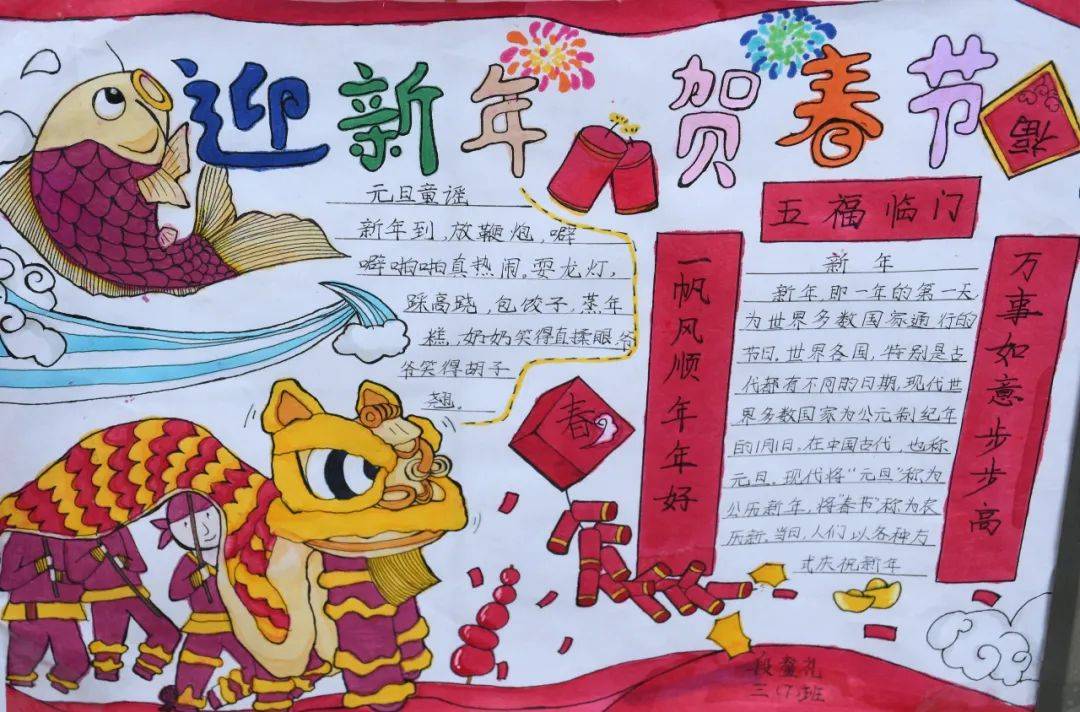 迎新年 贺春节
福
元旦童谣
新年到,放鞭炮,噼
噼啪啪真热闹。耍龙灯,
踩高跷,包饺子,蒸年
糕,奶奶笑得直揉眼,爷
爷笑得胡子
翘。
春
五福临门
一帆风顺年年好
新年
新年,即一年的第一天,
为世界多数国家通行的
节日。世界各国,特别是古
代都有不同的日期,现代世
界多数国家为公元制纪年
的1月1日。在中国古代,也称
元旦。现代将“元旦”称为
公历新年,将“春节”称为农
历新。当日,人们以各种方
式庆祝新年
万事如意步步高
三(7)班